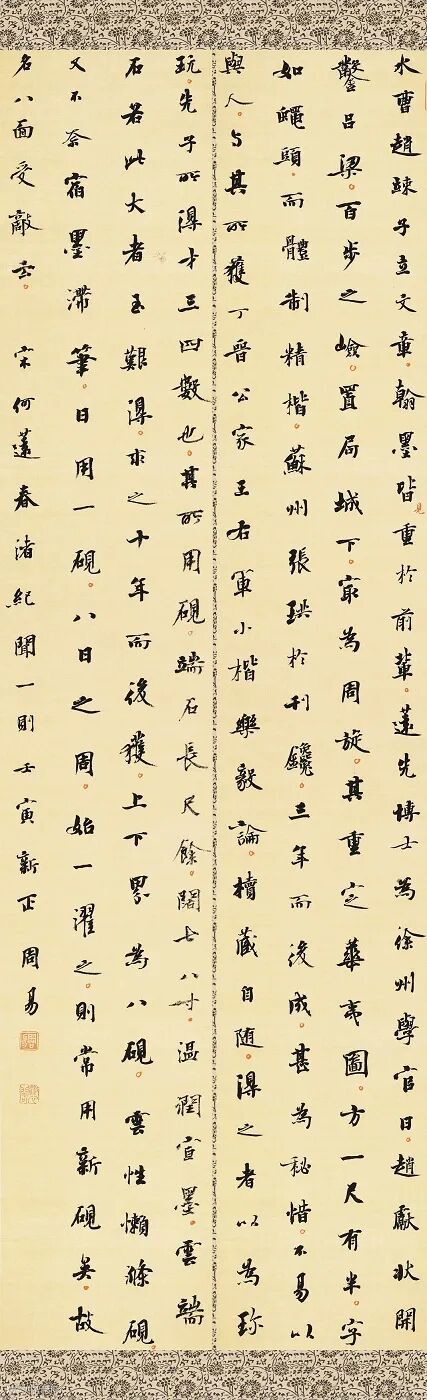 水曹趙竦子立文章翰墨皆重於前輩。薳先博士為徐州學官日。趙獻狀開
鑿呂梁。百步之嶮。置局城下。冣為周旋。其重定華夷圖。方一尺有半。字
如蠅頭。而體制精楷。蘇州張珙於刊鑱。三年而後成。甚為秘惜。不易以
與人。与其所獲丁晉公家王右軍小楷樂毅論。櫝藏自随。淂之者以為珎
玩。先子所淂才三四數也。其所用硯。端石長尺餘。闊七八寸。温潤宜墨。雲端
石若此大者至艱淂。求之十年而後獲。上下界為八硯。雲性懶滌硯
又不奈宿墨滯筆。日用一硯。八日之周。始一濯之。則常用新硯矣。故
名八面受敵云。 宋何薳春渚紀聞一則壬寅新正周易